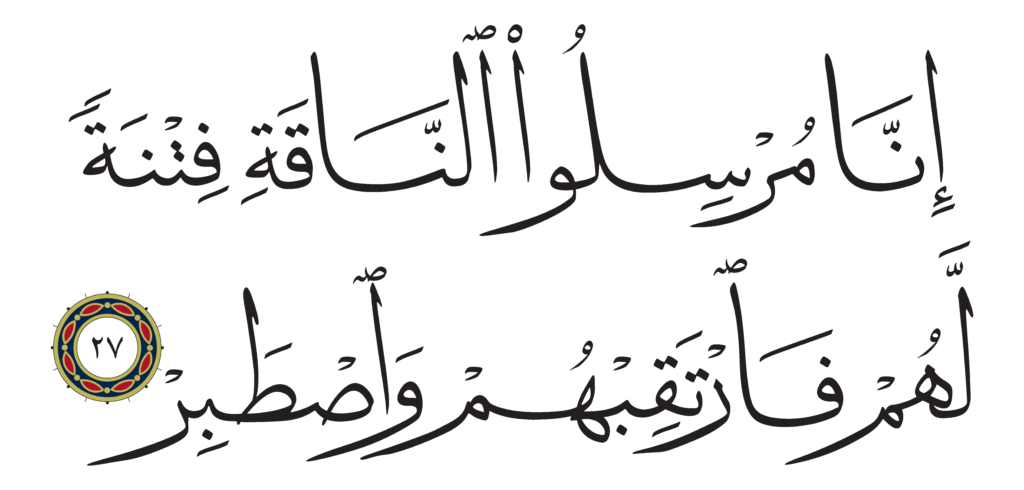 إِنَّا مُرْسِلُوا۟ ٱلنَّاقَةِ فِتْنَةً
لَّهُمْ فَٱرْتَقِبْهُمْ وَٱصْطَبِرْ ٢٧